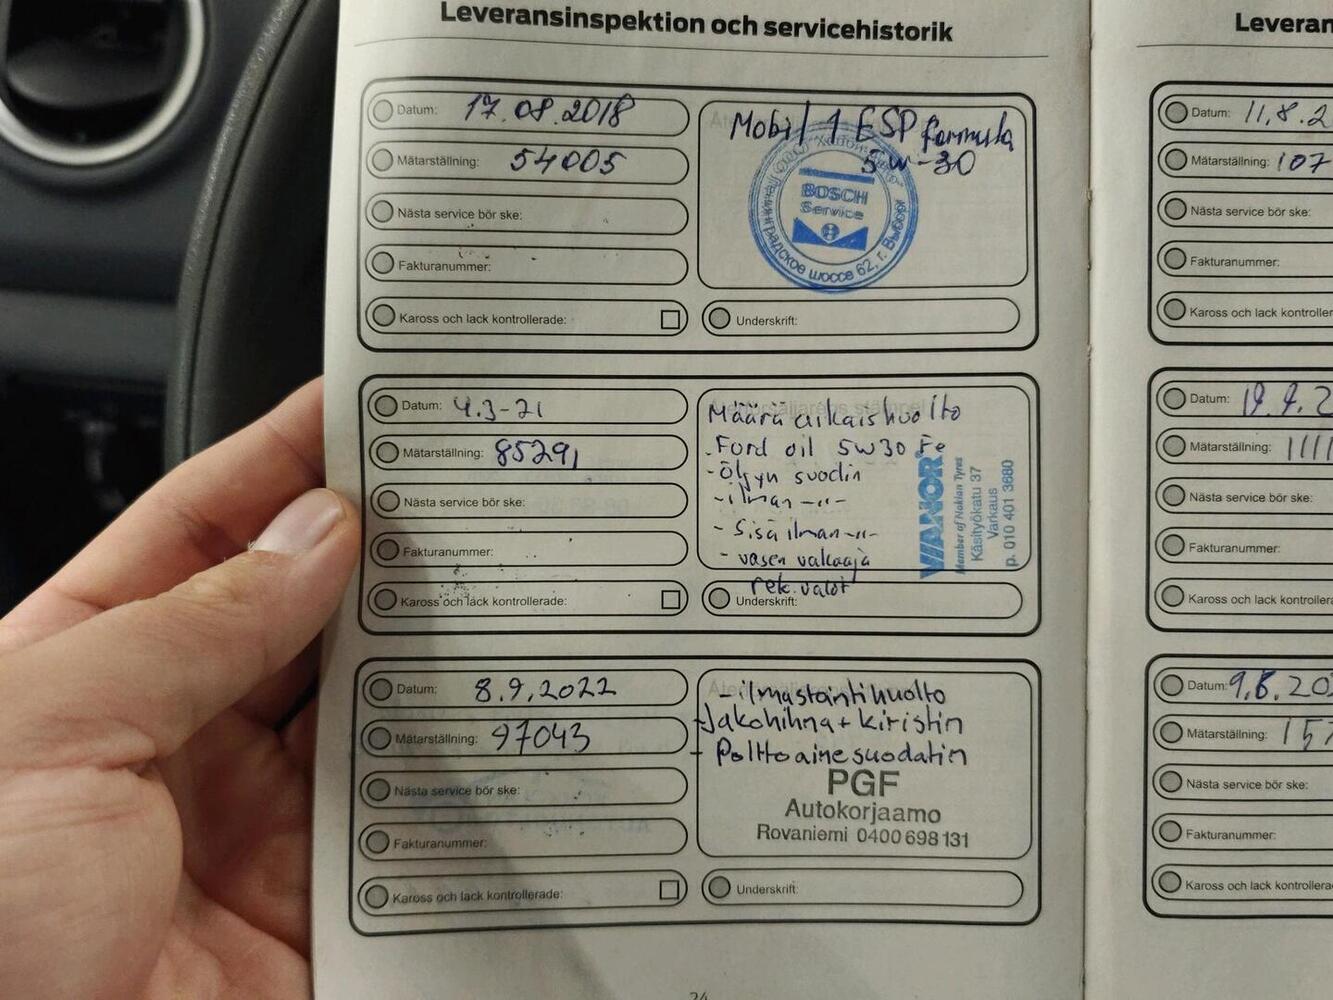 Leveransinspektion och servicehistorik
Datum: 17.08.2018
Mätarställning: 54005
Nästa service bör ske:
Fakturanummer:
Kaross och lack kontrollerade:
Mobil 1 ESP formula
5w-30
BOSCH
Service
шоссе 62, г. Выборг
Underskrift:
Datum: 4.3-21
Mätarställning: 85291
Nästa service bör ske:
Fakturanummer:
Kaross och lack kontrollerade:
Määräaikaishuolto
-Ford oil 5w30 Fe
-Öljyn suodin
-ilman -"-
- Sisäilman -"-
- vasen vakaaja
rek.valot
VIANOR
Member of Nokian Tyres
Käsityökatu 37
Varkaus
p. 010 401 3680
Underskrift:
Datum: 8.9.2022
Mätarställning: 97043
Nästa service bör ske:
Fakturanummer:
Kaross och lack kontrollerade:
- ilmastointihuolto
-Jakohihna + kiristin
- Polttoainesuodatin
PGF
Autokorjaamo
Rovaniemi 0400 698 131
Underskrift:
24
Leveran
Datum: 11.8.2
Mätarställning: 107
Nästa service bör ske:
Fakturanummer:
Kaross och lack kontroller
Datum: 19.9.2
Mätarställning: 1111
Nästa service bör ske:
Fakturanummer:
Kaross och lack kontrollera
Datum: 9.8.20
Mätarställning: 157
Nästa service bör ske:
Fakturanummer:
Kaross och lack kontrollera